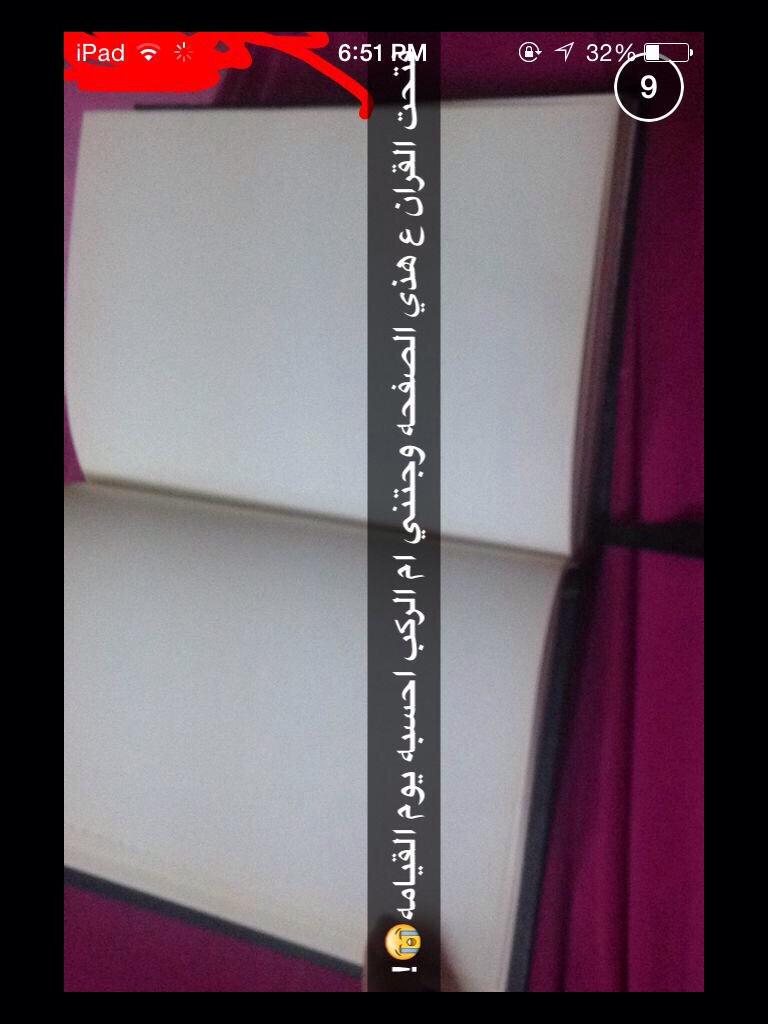 iPad 6:51 PM 32%
9
فتحت القران ع هذي الصفحه وجتني ام الركب احسبه يوم القيامه😭!